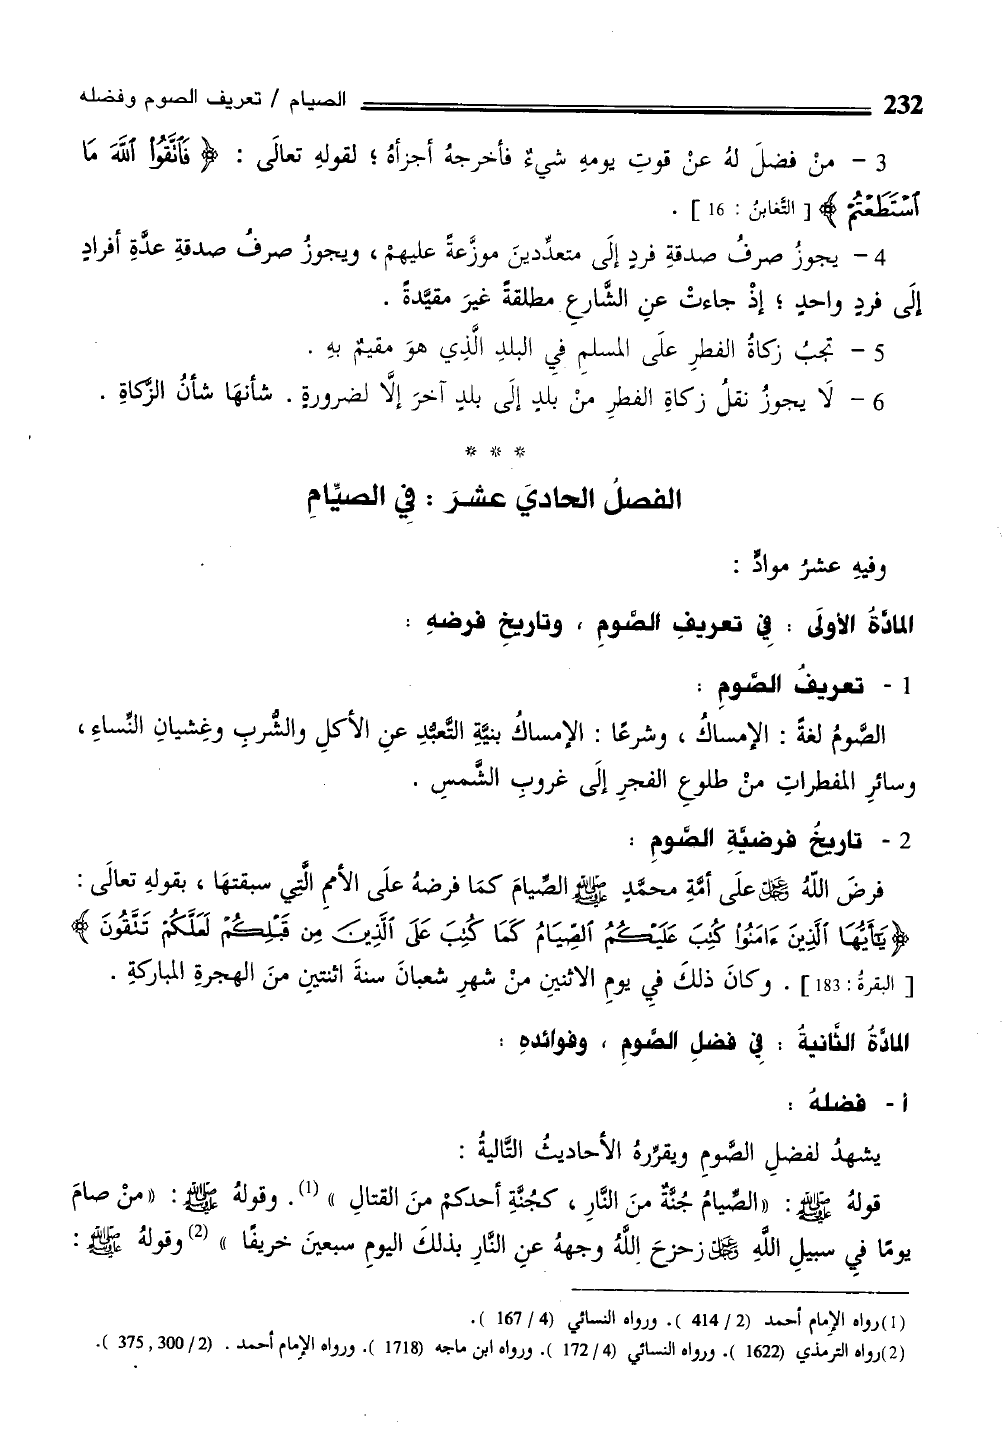 232 الصيام / تعريف الصوم وفضله
3 - منْ فضلَ لهُ عنْ قوتِ يومهِ شيءٌ فأخرجهُ أجزأهُ ؛ لقولهِ تعالَى : ﴿ فَٱتَّقُوا۟ ٱللَّهَ مَا
ٱسْتَطَعْتُمْ ﴾ [ التَّغابنُ : 16 ] .
4 - يجوزُ صرفُ صدقةِ فردٍ إلَى متعدِّدينَ موزَّعةً عليهمْ ، ويجوزُ صرفُ صدقةِ عدَّةِ أفرادٍ
إلَى فردٍ واحدٍ ؛ إذْ جاءتْ عنِ الشَّارعِ مطلقةً غيرَ مقيَّدةً .
5 - تجبُ زكاةُ الفطرِ علَى المسلمِ فِي البلدِ الَّذِي هوَ مقيمٌ بهِ .
6 - لَا يجوزُ نقلُ زكاةِ الفطرِ منْ بلدٍ إلَى بلدٍ آخرَ إلَّا لضرورةٍ . شأنهَا شأنُ الزَّكاةِ .
* * *
الفصلُ الحاديَ عشرَ : فِي الصيِّامِ
وفيهِ عشرُ موادٍّ :
المادَّةُ الأولَى : فِي تعريفِ الصَّومِ ، وتاريخِ فرضهِ :
1 - تعريفُ الصَّومِ :
الصَّومُ لغةً : الإمساكُ ، وشرعًا : الإمساكُ بنيَّةِ التَّعبُّدِ عنِ الأكلِ والشُّربِ وغِشيانِ النِّساءِ ،
وسائرِ المفطراتِ منْ طلوعِ الفجرِ إلَى غروبِ الشَّمسِ .
2 - تاريخُ فرضيَّةِ الصَّومِ :
فرضَ اللَّهُ ﷿ علَى أمَّةِ محمَّدٍ ﷺ الصِّيامَ كمَا فرضهُ علَى الأممِ الَّتِي سبقتهَا ، بقولهِ تعالَى :
﴿ يَٰٓأَيُّهَا ٱلَّذِينَ ءَامَنُوا۟ كُتِبَ عَلَيْكُمُ ٱلصِّيَامُ كَمَا كُتِبَ عَلَى ٱلَّذِينَ مِن قَبْلِكُمْ لَعَلَّكُمْ تَتَّقُونَ ﴾
[ البقرةُ : 183 ] . وكانَ ذلكَ فِي يومِ الاثنينِ منْ شهرِ شعبانَ سنةَ اثنتينِ منَ الهجرةِ المباركةِ .
المادَّةُ الثَّانيةُ : فِي فضلِ الصَّومِ ، وفوائدهِ :
أ - فضلهُ :
يشهدُ لفضلِ الصَّومِ ويقرِّرهُ الأحاديثُ التَّاليةُ :
قولهُ ﷺ : «الصِّيامُ جُنَّةٌ منَ النَّارِ ، كجُنَّةِ أحدكمْ منَ القتالِ » (1). وقولهُ ﷺ : «منْ صامَ
يومًا فِي سبيلِ اللَّهِ ﷿ زحزحَ اللَّهُ وجههُ عنِ النَّارِ بذلكَ اليومِ سبعينَ خريفًا » (2) وقولهُ ﷺ :
(1)رواه الإمام أحمد (2 / 414 ). ورواه النسائي (4 / 167 ).
(2)رواه الترمذي (1622 ). ورواه النسائي (4 / 172 ). ورواه ابن ماجه (1718 ). ورواه الإمام أحمد . (2 / 300 , 375 ).